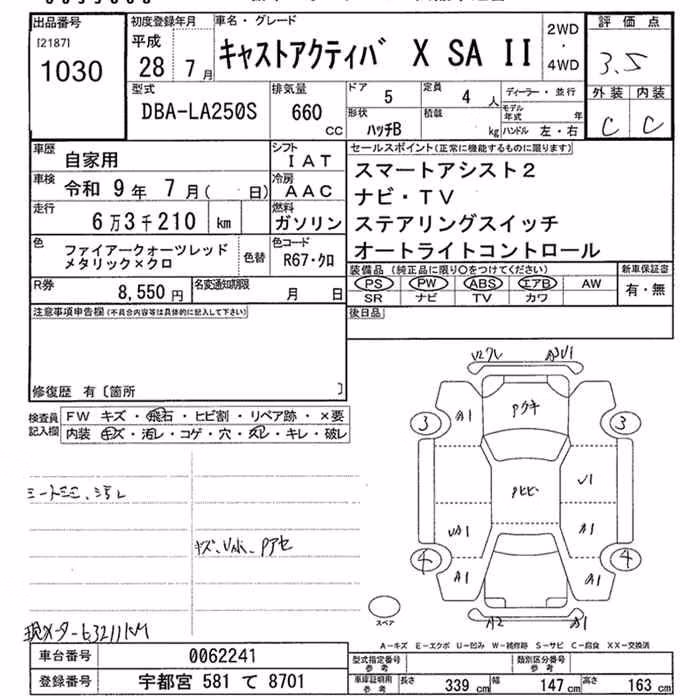 出品番号
[2187]
1030
初度登録年月
平成
28 7月
車名・グレード
キャストアクティバ X SA II
2WD
・
4WD
評価点
3.5
外装 内装
C C
型式
DBA-LA250S
排気量
660
CC
ドア
5
定員
4人
形状
ハッチB
積載
kg
ディーラー・並行
モデル年式 年
ハンドル 左・右
車歴
自家用
シフト
IAT
車検
令和 9年 7月( 日)
冷房
AAC
走行
6万3千210 km
燃料
ガソリン
色
ファイアークォーツレッド
メタリック×クロ
色替
色コード
R67・クロ
R券
8,550円
名変通知期限
月 日
セールスポイント(正常に機能するものに限ります)
スマートアシスト2
ナビ・TV
ステアリングスイッチ
オートライトコントロール
装備品 (純正品に限り○をつけてください)
PS PW ABS エアB AW
SR ナビ TV カワ
新車保証書
有・無
注意事項申告欄(不具合内容等は具体的に記入して下さい)
後日品
修復歴 有〔箇所 〕
検査員
記入欄
FW キズ・飛石・ヒビ割・リペア跡・×要
内装 キズ・汚レ・コゲ・穴・スレ・キレ・破レ
キズ、
現メーター63211KM
3
3
4
4
A1
Pワキ
Pヒビ
U1
A1
UA1
A1
A1
A2
B1
スペア
A-キズ E-エクボ U-凹み W-補修跡 S-サビ C-腐食 XX-交換済
車台番号
0062241
登録番号
宇都宮 581 て 8701
型式指定番号
参考
類別区分番号
参考
車庫証明用
参考
長さ
339 cm
幅
147 cm
高さ
163 cm